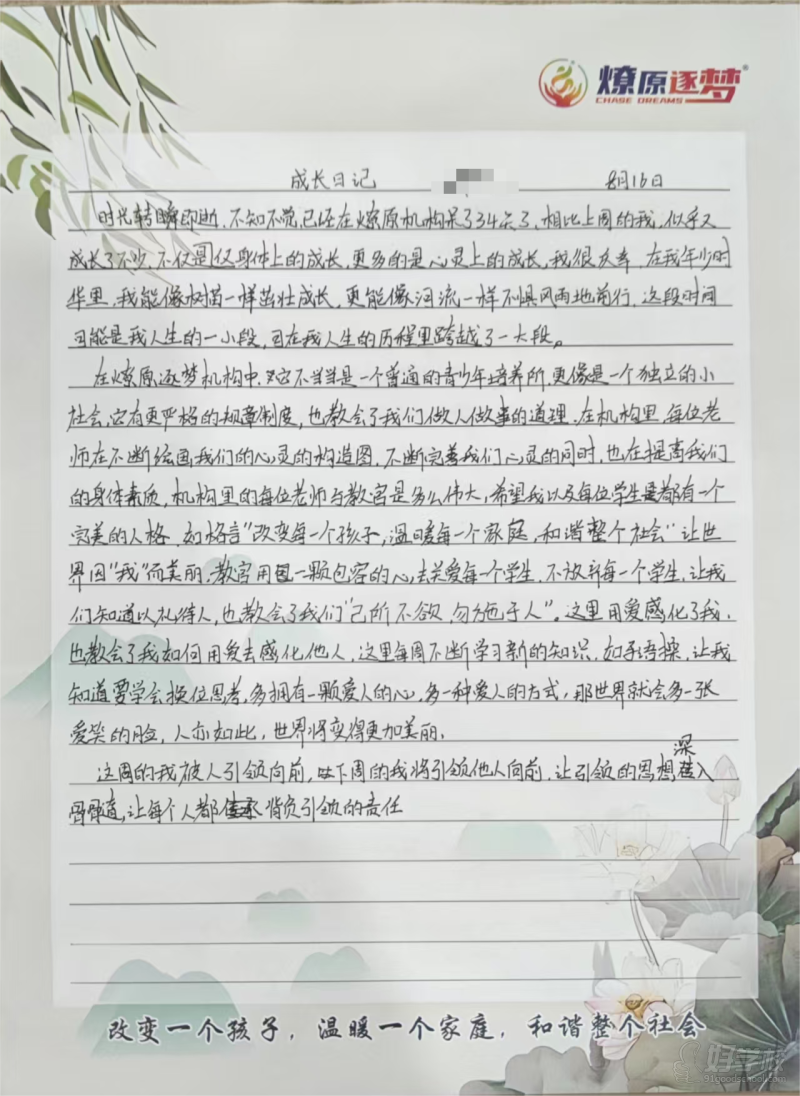 燎原逐梦®
CHASE DREAMS
成长日记 8月16日
时光转瞬即逝，不知不觉，已经在燎原机构呆了34天了，相比上周的我，似乎又
成长了不少，不仅是仅身体上的成长，更多的是心灵上的成长，我很庆幸，在我年少时
华里，我能像树苗一样茁壮成长，更能像河流一样不惧风雨地前行，这段时间
可能是我人生的一小段，可在我人生的历程里跨越了一大段。
在燎原逐梦机构中，它不当当是一个普通的青少年培养所，更像是一个独立的小
社会，它有更严格的规章制度，也教会了我们做人做事的道理，在机构里，每位老
师在不断绘画我们的心灵的构造图，不断完善我们心灵的同时，也在提高我们
的身体素质，机构里的每位老师与教官是多么伟大，希望我以及每位学生都有一个
完美的人格，如格言"改变每一个孩子，温暖每一个家庭，和谐整个社会"让世
界因"我"而美丽，教官用一颗包容的心，去关爱每个学生，不放弃每一个学生，让我
们知道以礼待人，也教会了我们"己所不欲，勿施于人"。这里用爱感化了我，
也教会了我如何用爱去感化他人，这里每周不断学习新的知识，如手语操，让我
知道要学会换位思考，多拥有一颗爱人的心，多一种爱人的方式，那世界就会多一张
爱笑的脸，人亦如此，世界将变得更加美丽，
这周的我被人引领向前，下周的我将引领他人向前，让引领的思想深入
骨髓，让每个人都背负引领的责任
改变一个孩子，温暖一个家庭，和谐整个社会
好学校
91goodschool.com